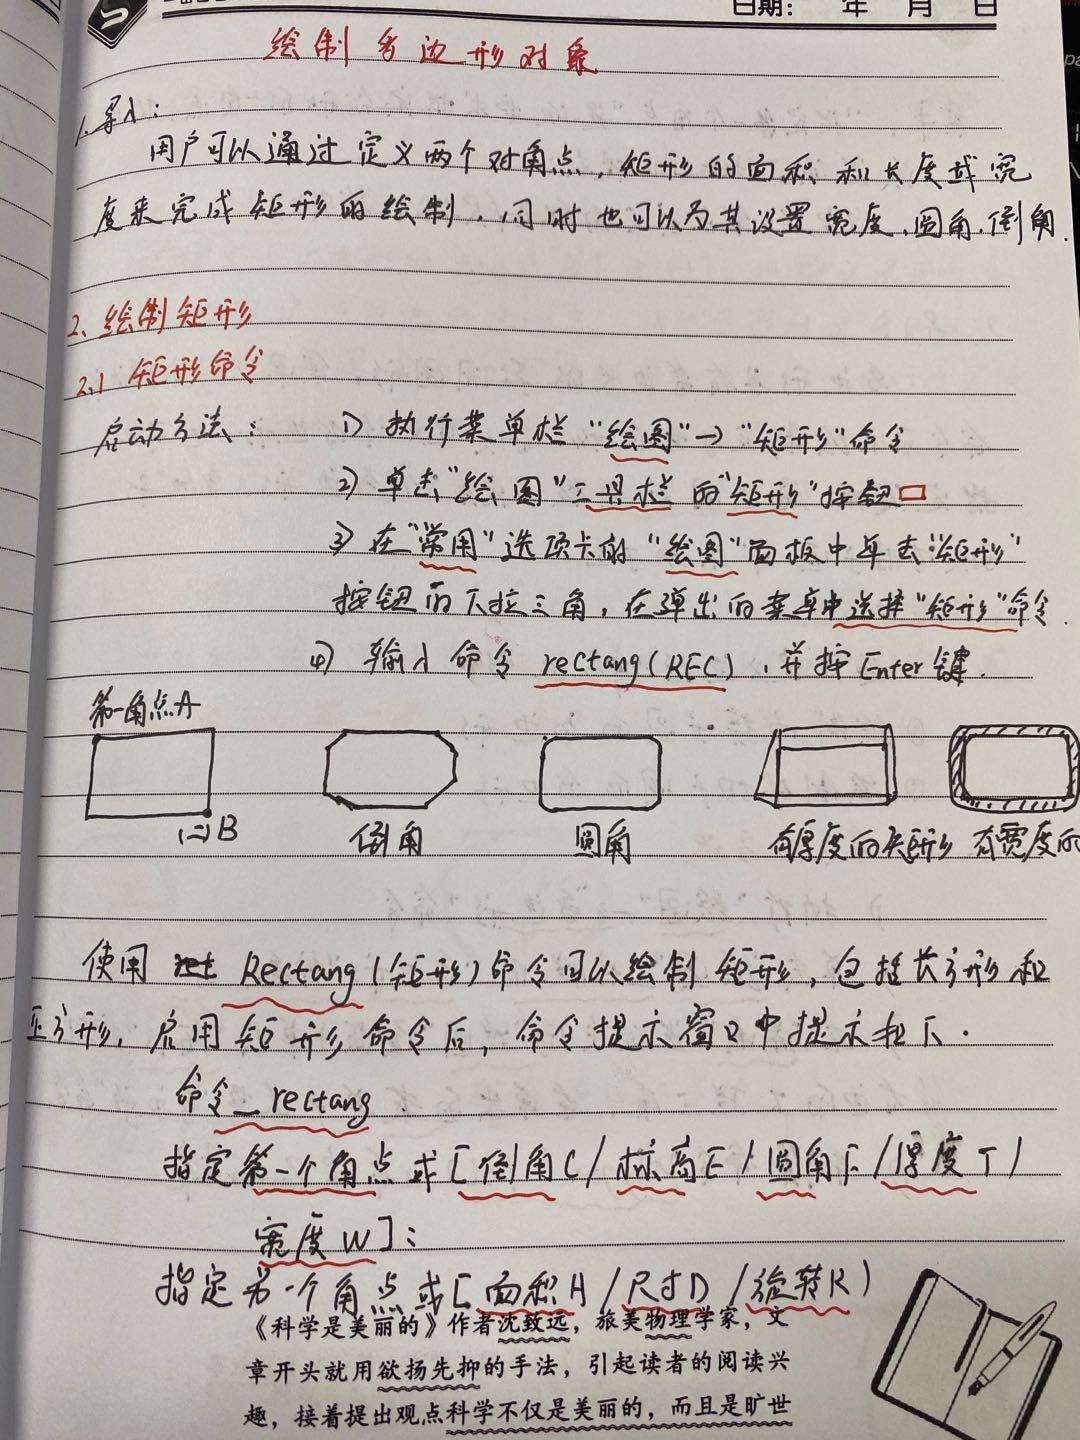 日期： 年 月 日
绘制多边形对象
1.导入：
用户可以通过定义两个对角点，矩形的面积和长度或宽
度来完成矩形的绘制，同时也可以为其设置宽度、圆角、倒角.
2、绘制矩形
2.1 矩形命令
启动方法： 1) 执行菜单栏“绘图”→“矩形”命令
2) 单击“绘图”工具栏的“矩形”按钮
3) 在“常用”选项卡的“绘图”面板中单击“矩形”
按钮的下拉三角，在弹出的菜单中选择“矩形”命令.
4) 输入命令 rectang(REC)，并按Enter键.
第一角点A
(二)B 倒角 圆角 有厚度的矩形 有宽度的
使用 Rectang(矩形)命令可以绘制矩形，包括长方形和
正方形，启用矩形命令后，命令提示窗口中提示如下.
命令_rectang
指定第一个角点或[倒角C/标高E/圆角F/厚度T/
宽度W]：
指定另一个角点或[面积A/尺寸D/旋转R)
《科学是美丽的》作者沈致远，旅美物理学家，文
章开头就用欲扬先抑的手法，引起读者的阅读兴
趣，接着提出观点科学不仅是美丽的，而且是旷世